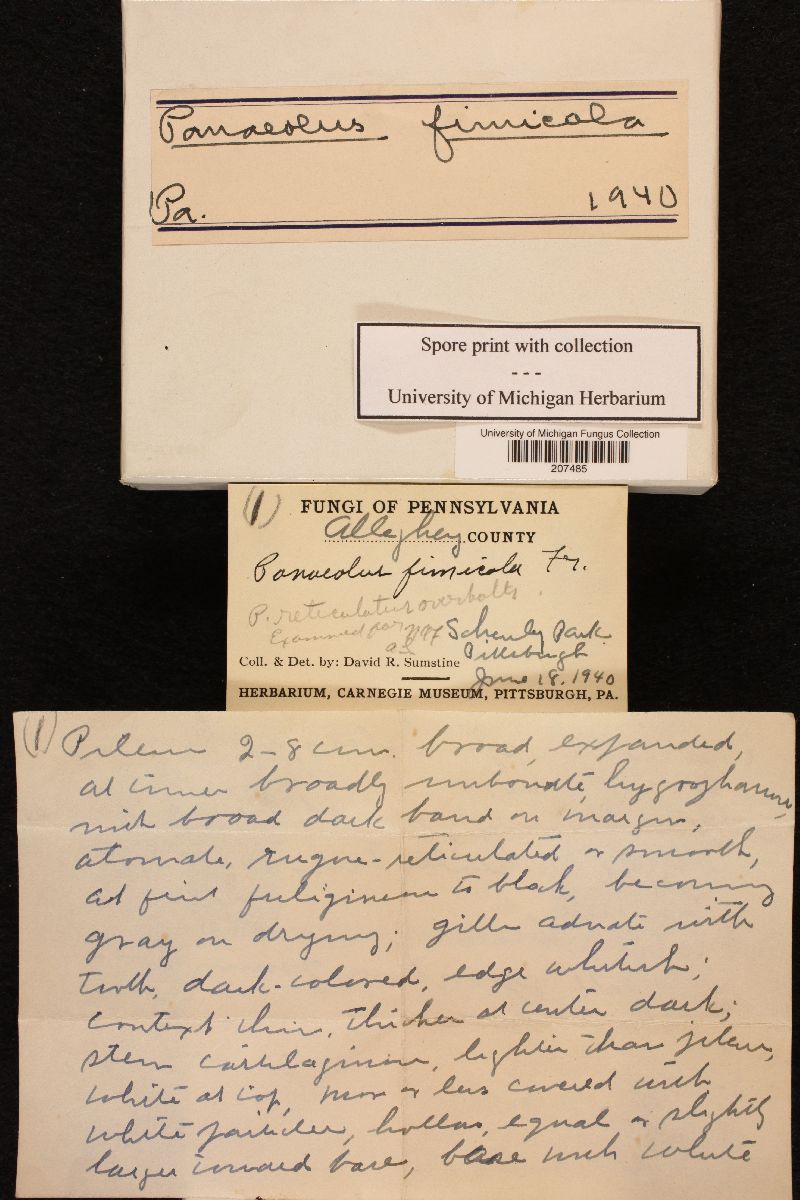 Panaeolus fimicola
Pa. 1940
Spore print with collection
- - -
University of Michigan Herbarium
University of Michigan Fungus Collection
207485
(1)
FUNGI OF PENNSYLVANIA
Allegheny COUNTY
Panaeolus fimicola Fr.
P. reticulatus Overholts
Examined
as
Schenley Park
Pittsburgh
Coll. & Det. by: David R. Sumstine
June 18, 1940
HERBARIUM, CARNEGIE MUSEUM, PITTSBURGH, PA.
(1) Pileus 2-8 cm. broad, expanded,
at times broadly umbonate, hygrophanous,
with broad dark band on margin,
atomate, rugose-reticulated or smooth,
at first fuligineous to black, becoming
gray on drying; gills adnate with
tooth, dark-colored, edge whitish;
context thin, thicker at center dark;
stem cartilaginous, lighter than pileus,
white at top, more or less covered with
white particles, hollow, equal or slightly
larger toward base, base with white